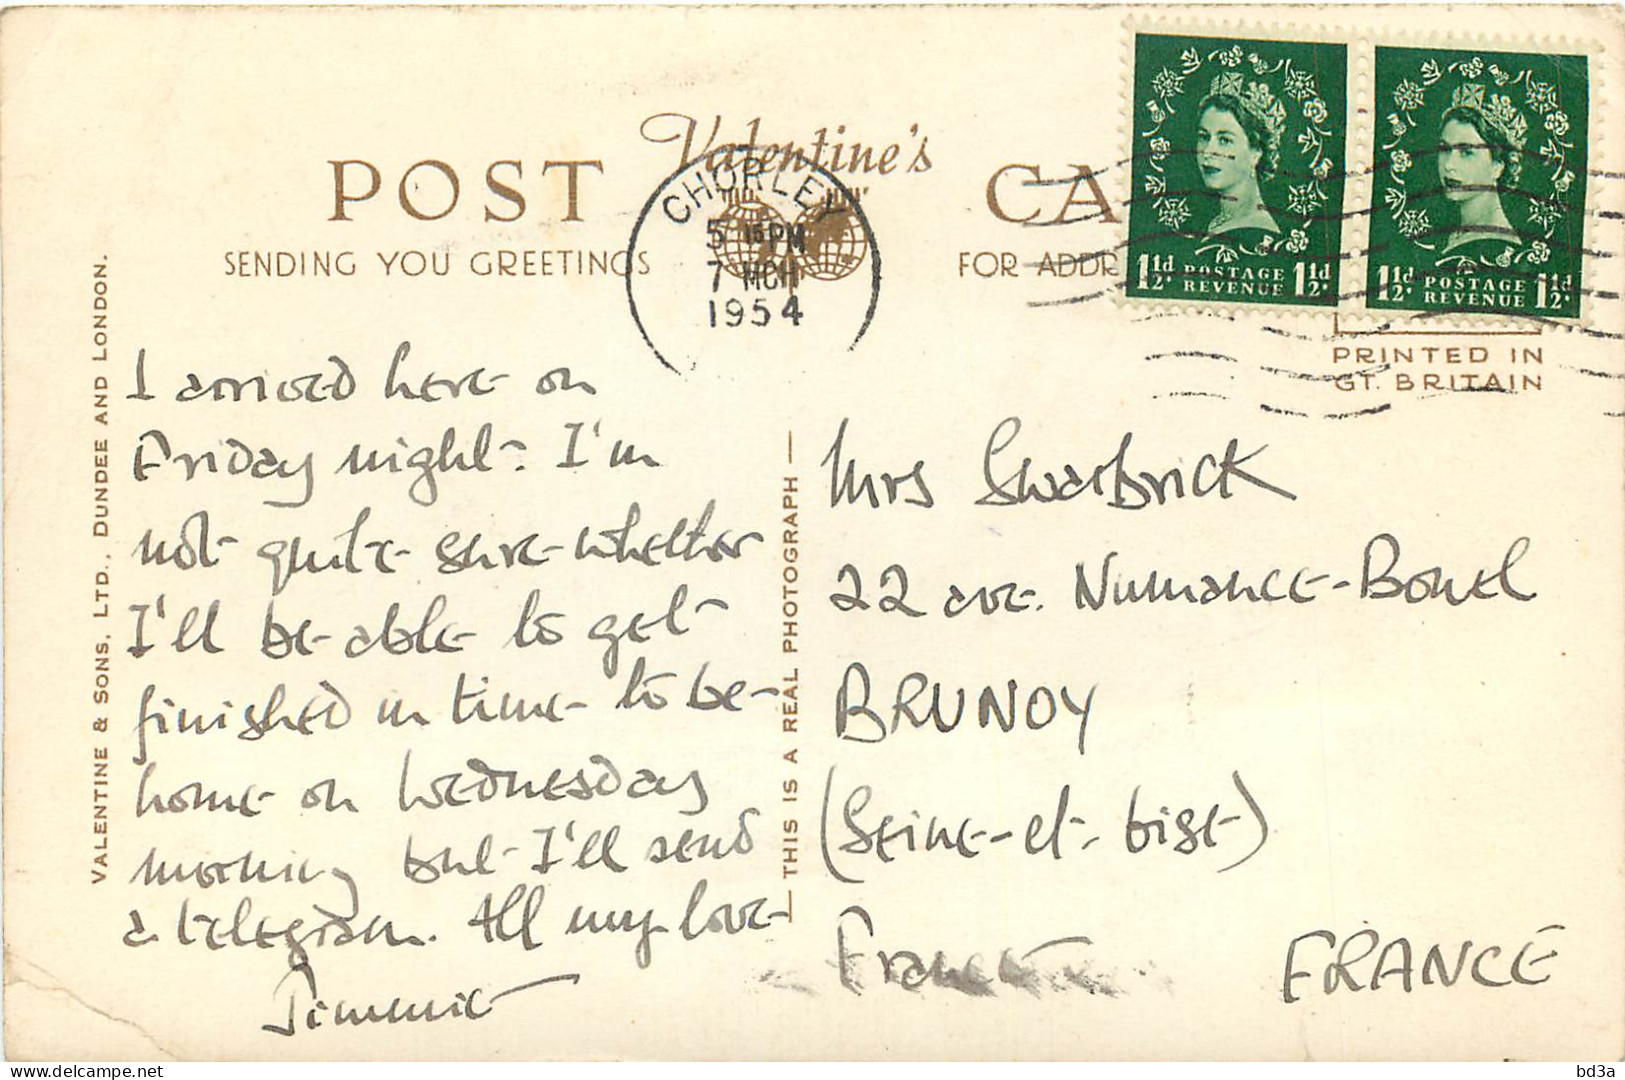 Valentine's
POST CA
SENDING YOU GREETINGS
FOR ADDR
CHORLEY
5 15 PM
7 MCH
1954
1½d POSTAGE REVENUE 1½d
1½d POSTAGE REVENUE 1½d
PRINTED IN
GT. BRITAIN
VALENTINE & SONS, LTD., DUNDEE AND LONDON.
THIS IS A REAL PHOTOGRAPH
I arrived here on
Friday night. I'm
not quite sure whether
I'll be able to get
finished in time to be
home on Wednesday
morning but I'll send
a telegram. All my love
Jimmie
Mrs Swarbrick
22 ave. Numance-Bouel
BRUNOY
(Seine-et-Oise)
France
FRANCE
delcampe.net
bd3a